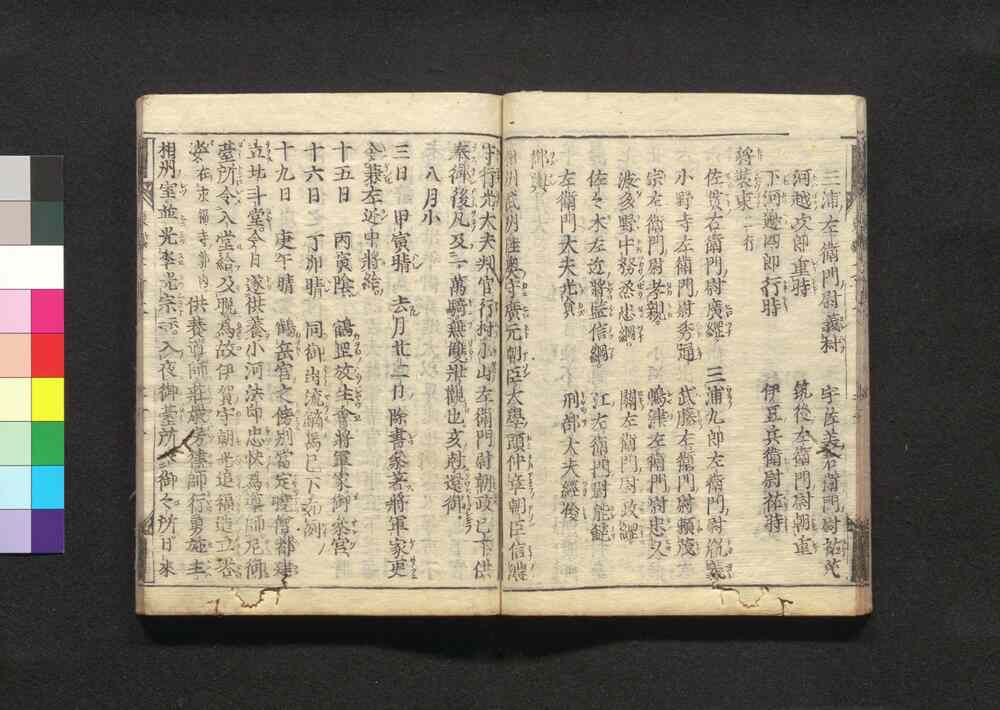 三浦左衛門尉義村 宇佐美右衛門尉祐茂
河越次郎重時 筑後左衛門尉朝重
下河邊四郎行時 伊豆兵衛尉祐時
將裝東二行
佐貫右衛門尉廣綱 三浦九郎左衛門尉胤義
小野寺左衛門尉秀通 武藤左衛門尉頼茂
宗左衛門尉孝親 嶋津左衛門尉忠久
波多野中務丞忠綱 關左衛門尉政綱
佐々木左近將監信綱 江右衛門尉能範
左衛門大夫光員 刑部大夫經俊
御輿
相州武州陸奥守廣元朝臣大學頭仲章朝臣信濃
守行光大夫判官行村小山左衛門尉朝政已下供
奉御後凡及一萬騎無雙壯觀也亥尅還御
八月小
三日 甲寅晴 去月廿二日除書參著將軍家更
令兼左近中將給
十五日 丙寅陰 鶴罡放生會將軍家御參宮
十六日 丁卯晴 同御出流鏑馬已下如例
十九日 庚午晴 鶴岳宮之傍別當定曉僧都建
立北斗堂今日遂供養小河法印忠快為導師尼御
臺所令入堂給
相州室并光季光宗等入夜御墓所 御々所日來